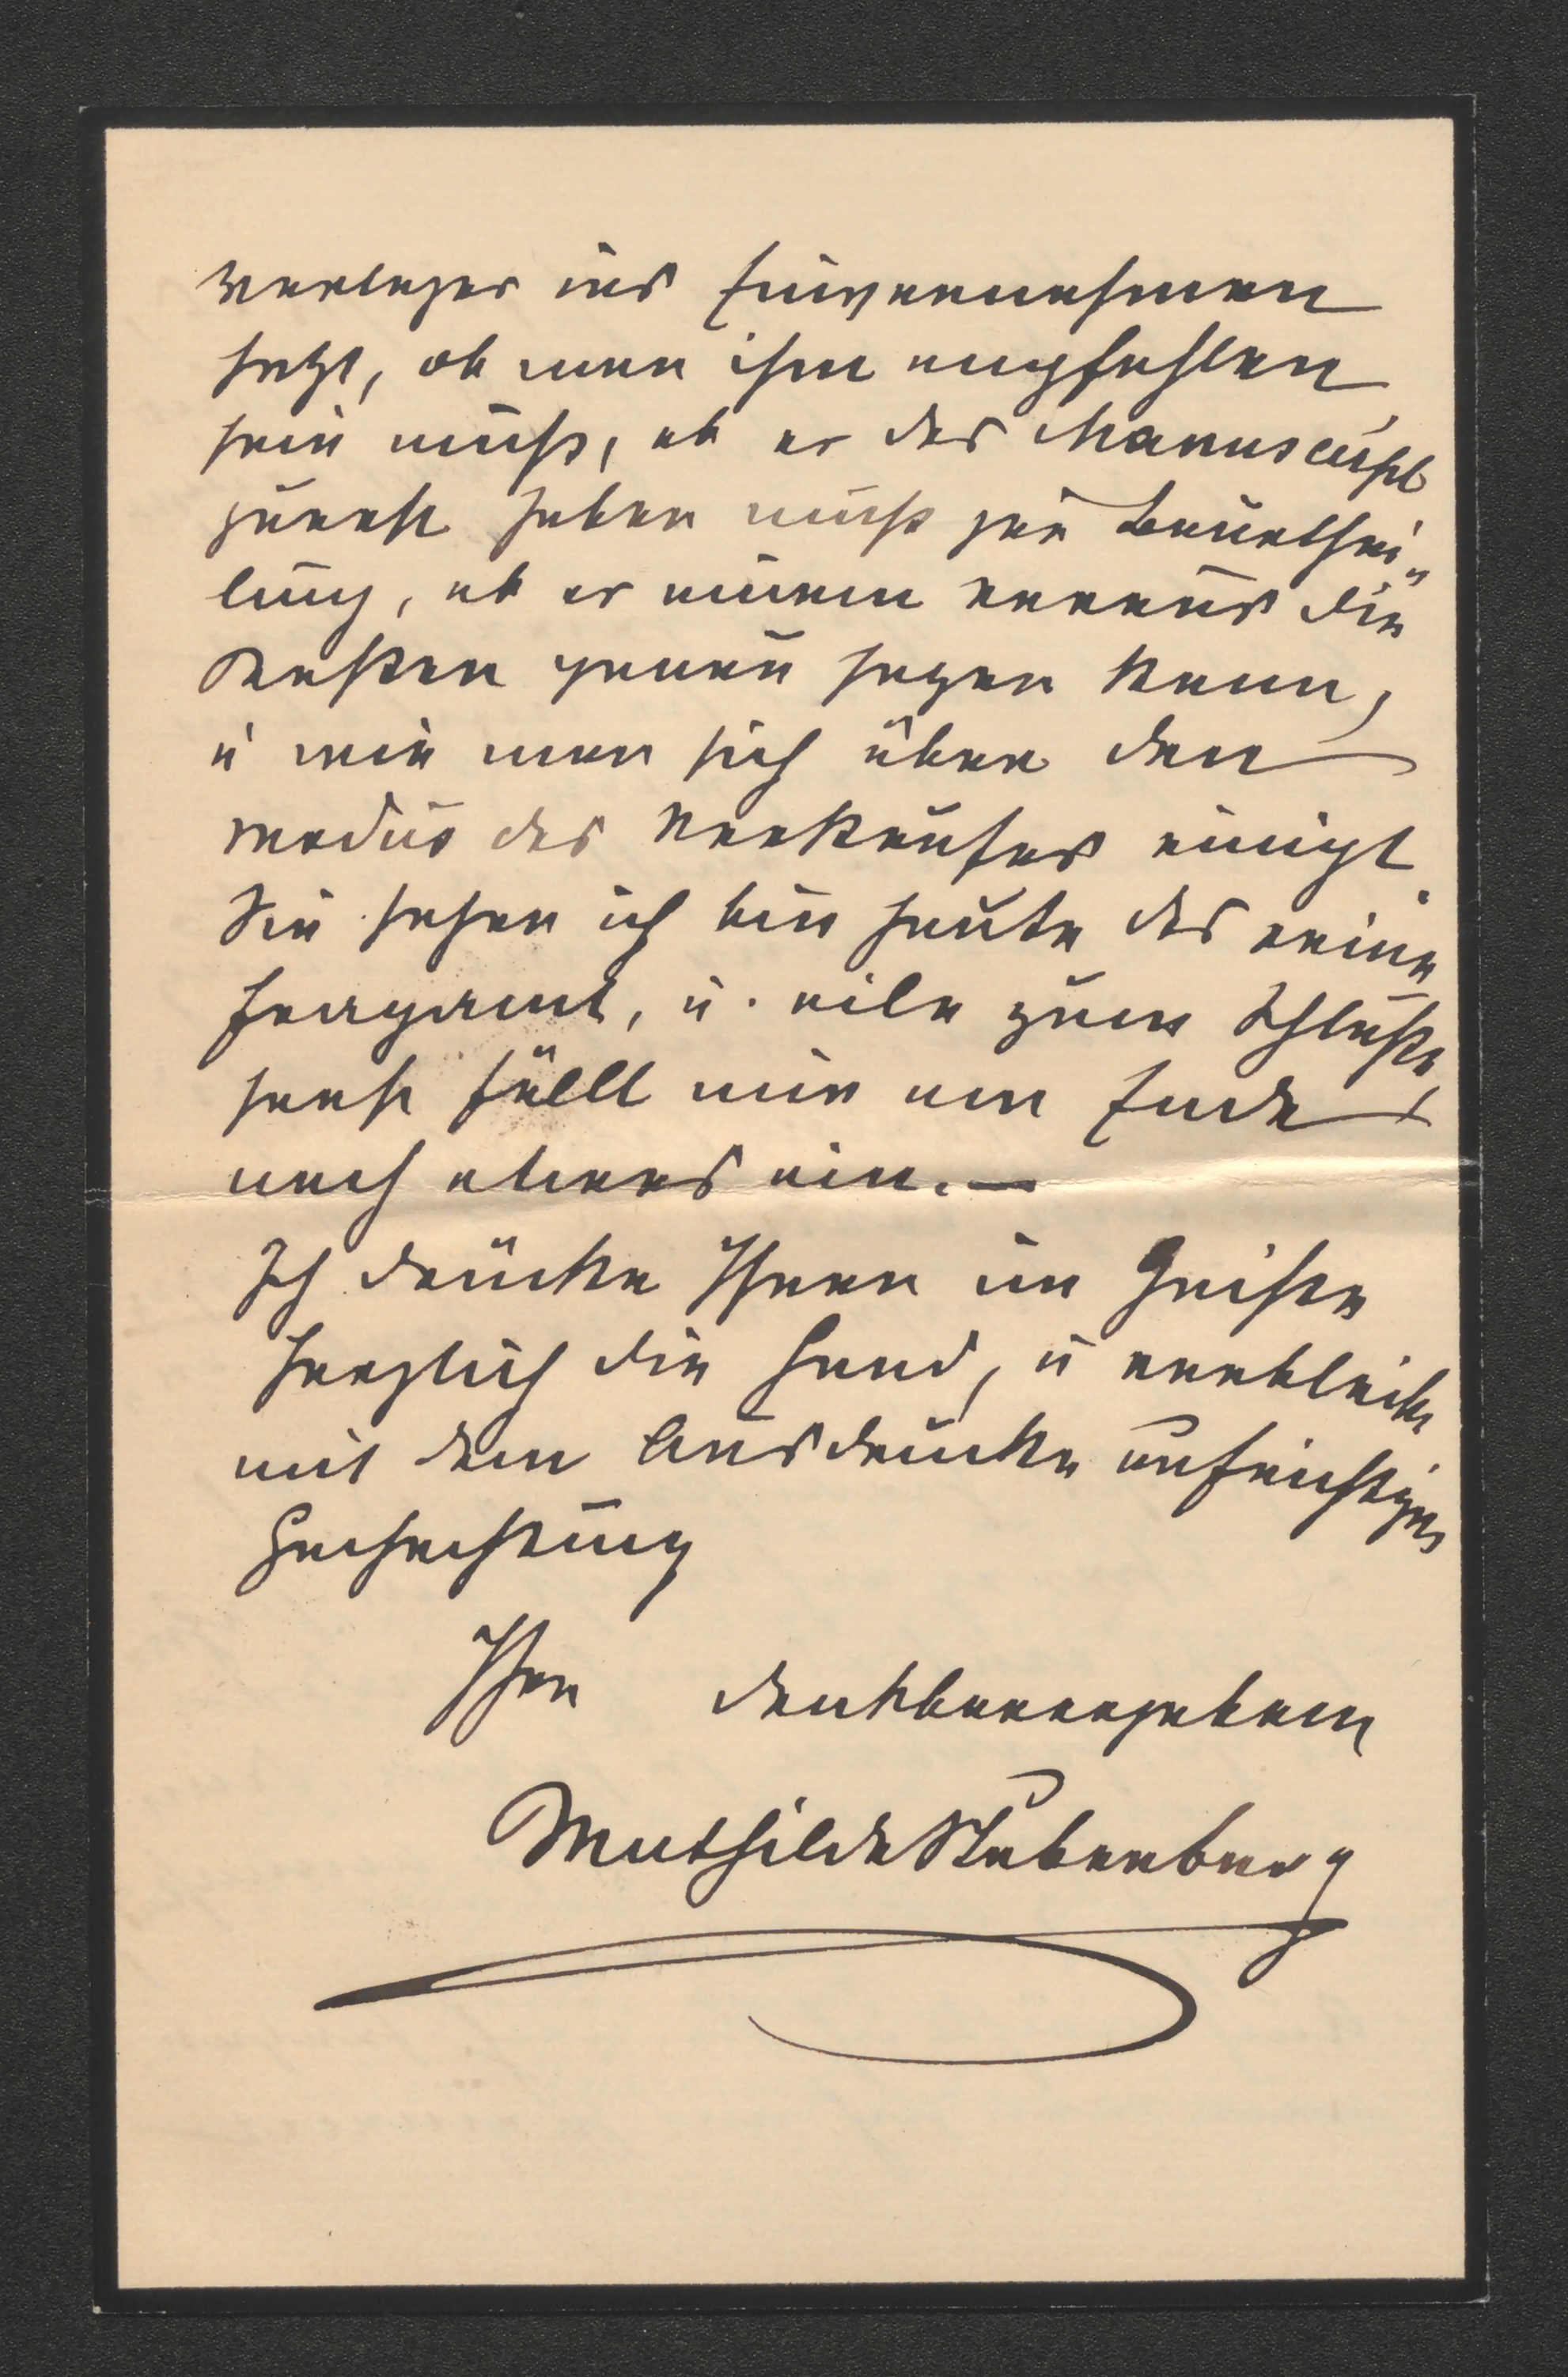 Verleger ins Einvernehmen
setzt, ob man ihm empfohlen
sein muß, ob er das Manuscript
zuerst haben muß zur Beurthei„
lung, ob er einem voraus die
Kosten genau sagen kann,
u wie man sich über den
modus des Verkaufes einigt.
Sie sehen ich bin heute das reine
Fragamt, u. eile zum Schluße,
sonst fällt mir am Ende
noch etwas ein. —
Ich drücke Ihnen im Geiste
herzlich die Hand, u verbleibe
mit dem Ausdrucke aufrichtiger
Hochachtung
Ihre dankbarergebene
Mathilde Stubenberg